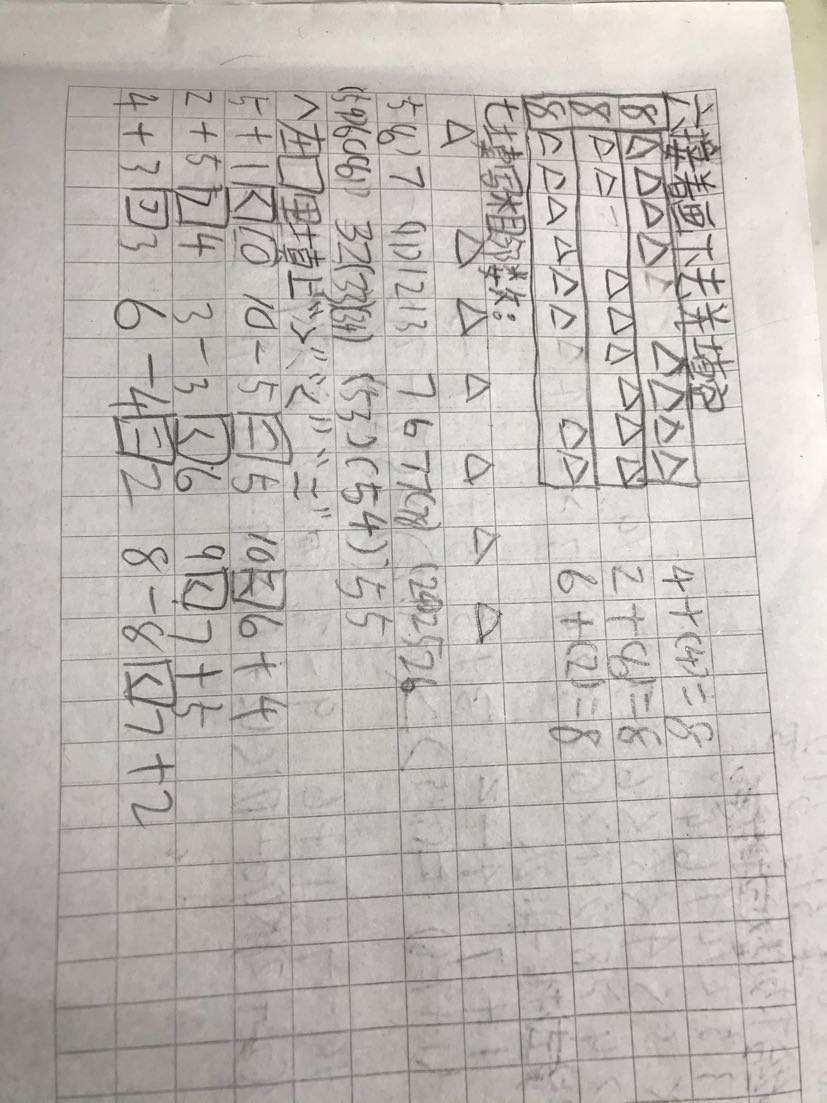 六接着画下去并填空
8 △△△△ △△△△ 4+(4)=8
8 △△ △△△△△△ 2+(6)=8
8 △△△△△△ △△ 6+(2)=8
七填写相邻数:
△ △ △ △ △ △ △
5(6)7 (11)1213 7677(78) (24)2526
(59)60(61) 32(33)(34) (53)(54)55
八在口里填上">""<""="
5+1<10 10-5=5 10<6+4
2+5>4 3-3<6 9<7+5
4+3>3 6-4=2 8-8<7+2